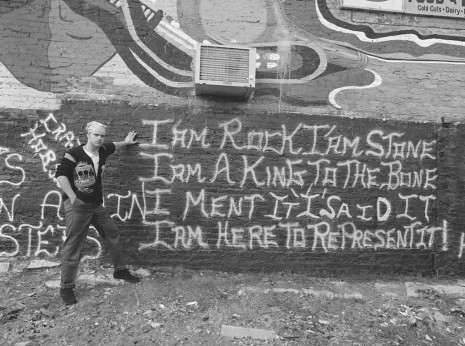 Cold Cuts · Dairy
I AM ROCK I'AM STONE
I AM A KING TO THE BONE
I MENT IT I SAID IT
I AM HERE TO REPRESENT IT!